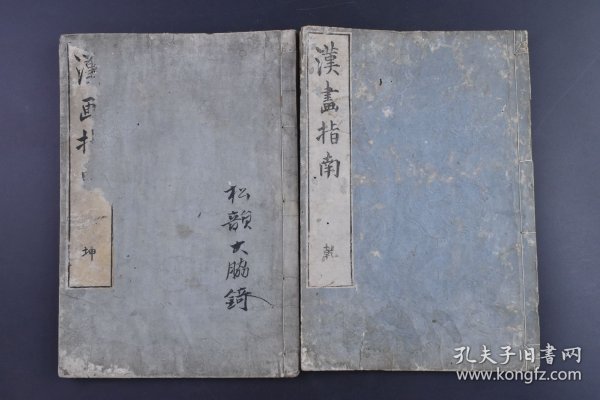 漢畫指南
乾
漢画指
坤
松韻大脇錡
孔夫子旧书网
www.kongfz.com